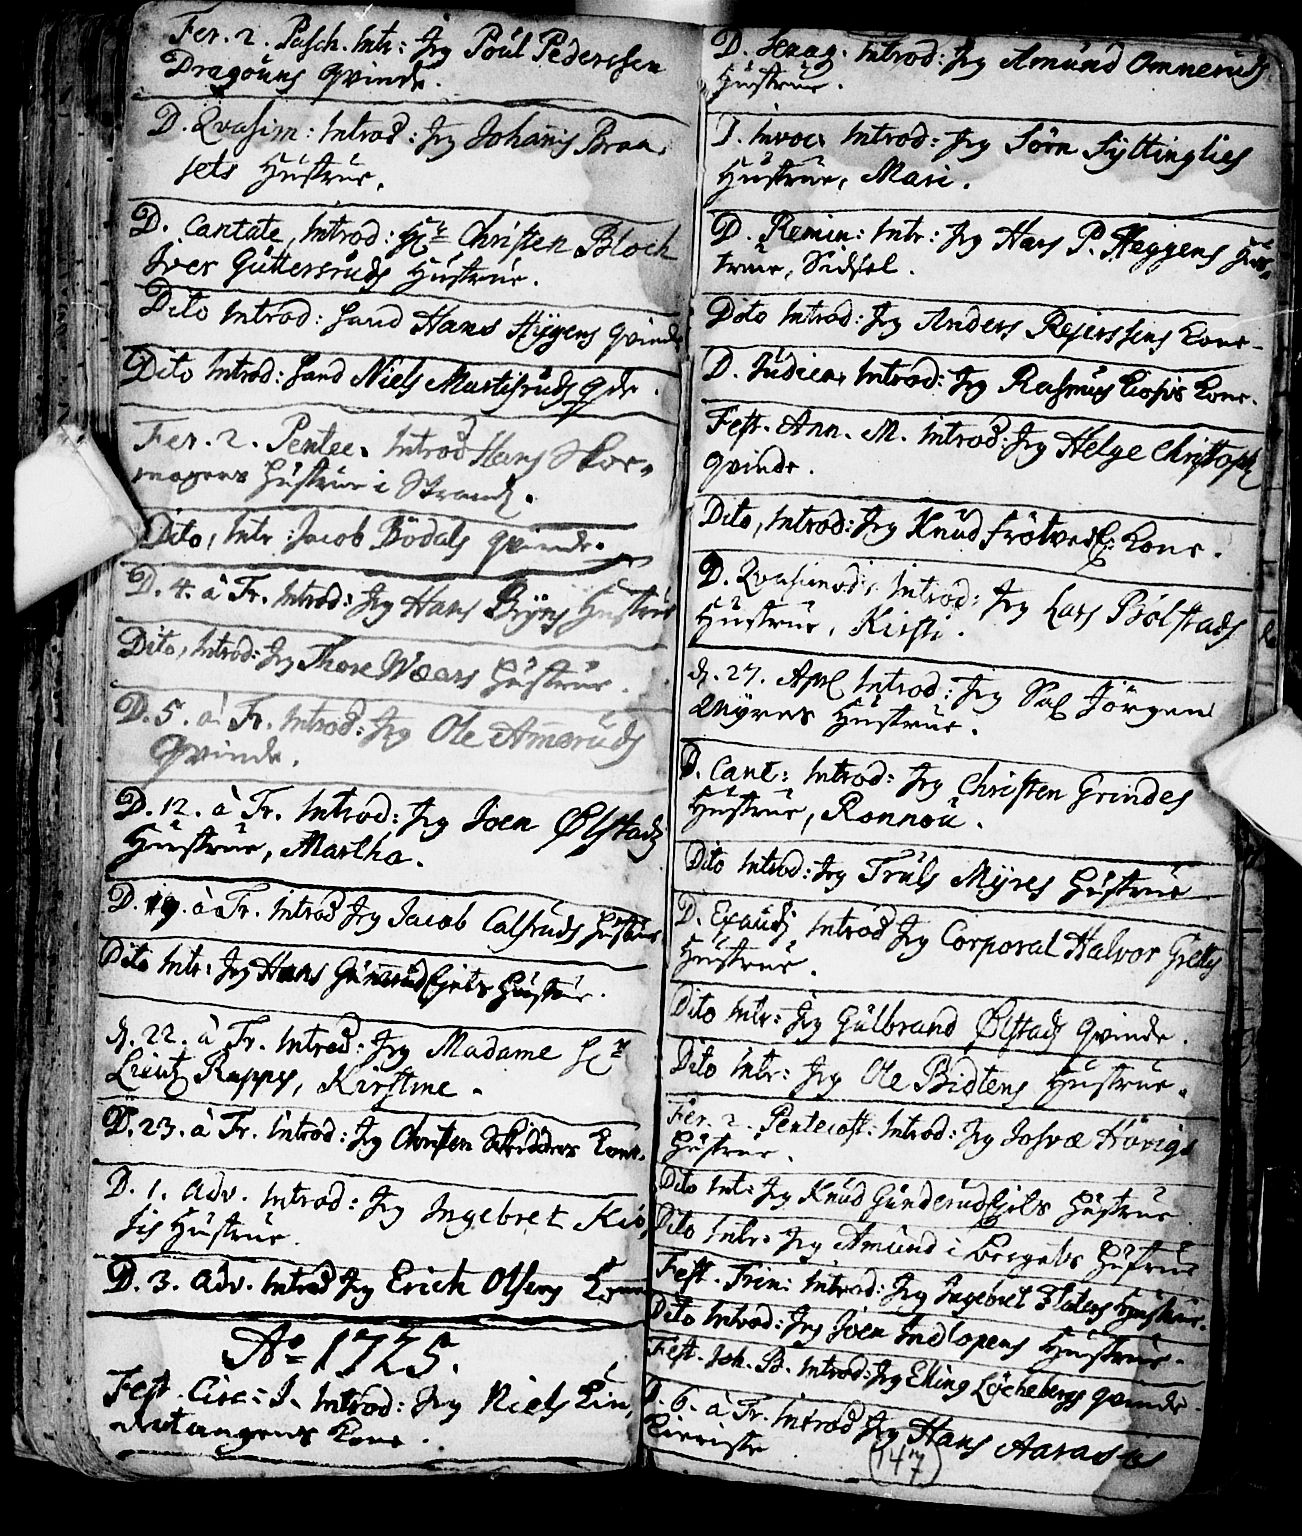 Fer. 2. Pasch. Intr: Jeg Poül Pederssen
Dragouns qvinde.
D. Qvasim: Introd: Jeg Johanis Braa,
sets Hüstrüe.
D. Cantate, Introd: Hr Christen Bloch
Iver Guttersrüds Hüstrüe.
Dito Introd: Hand Hans Hÿgens qvinde
Dito Introd: Hand Niels Murtisrüds qde.
Fer. 2. Pentec. Introd Hans Skoe-
magers Hüstrüe i Strand.
Dito, Intr: Jacob Bödals qvinde.
D. 4. à Tr. Introd: Jeg Hans Bÿes Hüstrüe
Dito, Introd: Jeg Thore Wears Hüstrüe.
D. 5. à Tr. Introd: Jeg Ole Amerüds
Qvinde.
D. 12. à Tr. Introd: Jeg Joen Ølstads
Hüstrüe, Martha.
D. 19. à Tr. Introd Jeg Jacob Calsrüds Hüstrüe
Dito Intr: Jeg Hans Hüstrüe.
d. 22. à Tr. Introd: Jeg Madame Hr
Lieut Rappes, Kirstine.
D. 23. à Tr. Introd: Jeg Christen Skredders Kone.
D. 1. Adv. Introd: Jeg Ingebret Kiø,
sis Hüstrüe.
D. 3. Adv. Introd Jeg Erich Olsens Kone
Ao 1725.
Fest. Circ: J. Introd: Jeg Niels Lin,
netangens Kone.
D. Sexag. Introd: Jeg Amund Omnerüds
Hüstrüe.
D. Invoc: Introd: Jeg Sörn Syttinglies
Hüstrüe, Mari.
D. Remin: Intr: Jeg Hans P. Heggens Hüs-
trüe, Sidsel.
Dito Introd: Jeg Anders Rejerssens Kone-
D. Judica, Introd: Jeg Rasmus Kone.
Fest. Ann. M. Introd: Jeg Helge Christoph
qvinde.
Dito, Introd: Jeg Knüd Frötved Kone.
D. Qvasimod: Introd: Jeg Lars Bölstads
Hüstrüe, Kirsti.
d. 27. Apl Introd: Jeg Sal Jörgen
Mÿres Hüstrüe.
D. Cant: Introd: Jeg Christen Grindes
Hüstrüe, Ronnou.
Dito Introd: Jeg Trüls Mÿres Hüstrüe
D. Exaudi Introd Jeg Corporal Halvor
Hüstrüe.
Dito Intr: Jeg Gülbrand Ølstads qvinde.
Dito Intr: Jeg Ole Bidtens Hüstrüe.
Fer. 2. Pentecost: Introd: Jeg Josvæ Hövigs
Hüstrüe.
Dito Int: Jeg Knüd Hüstrüe
Dito Intr: Jeg Amund i Berget Hüstrüe
Fest. Trin: Introd: Jeg Ingebret Flatens Hüstrüe.
Dito Introd: Jeg Joen Indlopens Hüstrüe.
Fest. Joh. B. Introd: Jeg Elling Löchebergs qvinde.
D. 6. à Tr. Introd Jeg Hans
147